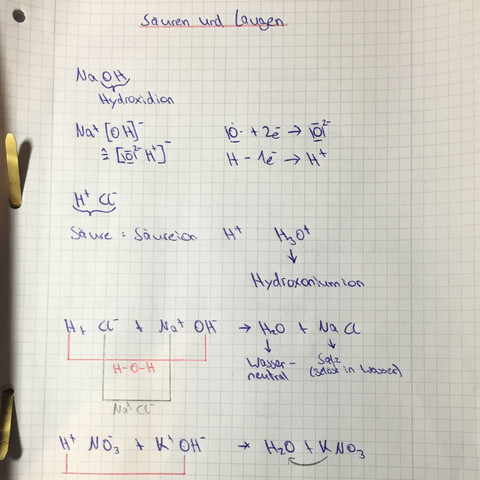 Säuren und Laugen
NaOH
Hydroxidion
Na⁺ [OH]⁻ |O· + 2e⁻ → |O|²⁻
≙ [|O|²⁻ H⁺]⁻ H - 1e⁻ → H⁺
H⁺ Cl⁻
Säure : Säureion H⁺ H₃O⁺
↓
Hydroxoniumion
H+ Cl⁻ + Na⁺ OH⁻ → H₂O + NaCl
↓ ↓
H-O-H Wasser- Salz
neutral (in Wasser)
Na⁺Cl⁻
H⁺ NO₃⁻ + K⁺ OH⁻ → H₂O + KNO₃